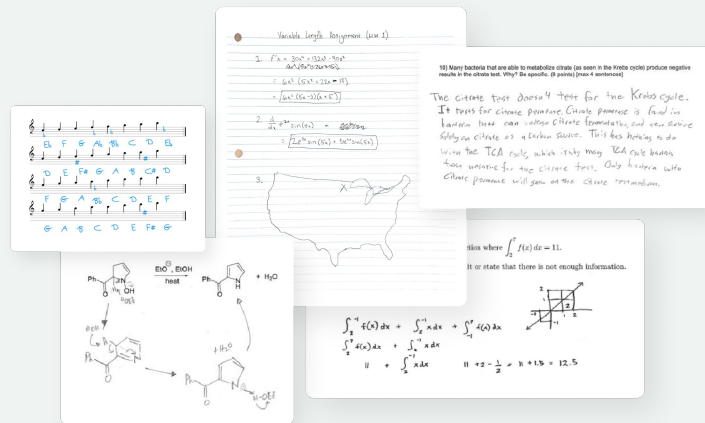 Variable Length Assignment (HW 1)
1. f'x = 30x⁴ + 132x³ - 90x²
= 6x² (5x² + 22x - 15)
= 6x² (5x - 3)(x + 5)
2. d/dx e²ˣ sin(5x)
= 2e²ˣ sin(5x) + 5e²ˣ
3.
X
10) Many bacteria that are able to metabolize citrate (as seen in the Krebs cycle) produce negative
results in the citrate test. Why? Be specific. (8 points) [max 4 sentences]
The citrate test doesn't test for the Krebs cycle.
It tests for citrate permease. Citrate permease is found in
bacteria that can citrate fermentation, and can survive
solely on citrate as a carbon source. This has nothing to do
with the TCA cycle, which is why many TCA cycle bacteria
test negative for the citrate test. Only bacteria with
citrate permease will grow on the citrate test medium.
Eb F G Ab Bb C D Eb
D E F# G A B C# D
F G A Bb C D E F
G A B C D E F# G
Ph
O
N
OH
EtO⊖, EtOH
heat
Ph
O
N
H
+ H₂O
+H₂O
Ph
O
N
H-OEt
Ph
O
ction where ∫₂⁷ f(x) dx = 11.
it or state that there is not enough information.
∫₂⁻¹ f(x) dx + ∫₂⁻¹ x dx + ∫₋₁⁷ f(x) dx
∫₂⁷ f(x) dx + ∫₂⁻¹ x dx
11 + ∫₂⁻¹ x dx
11 + 2 - 1/2 = 11 + 1.5 = 12.5